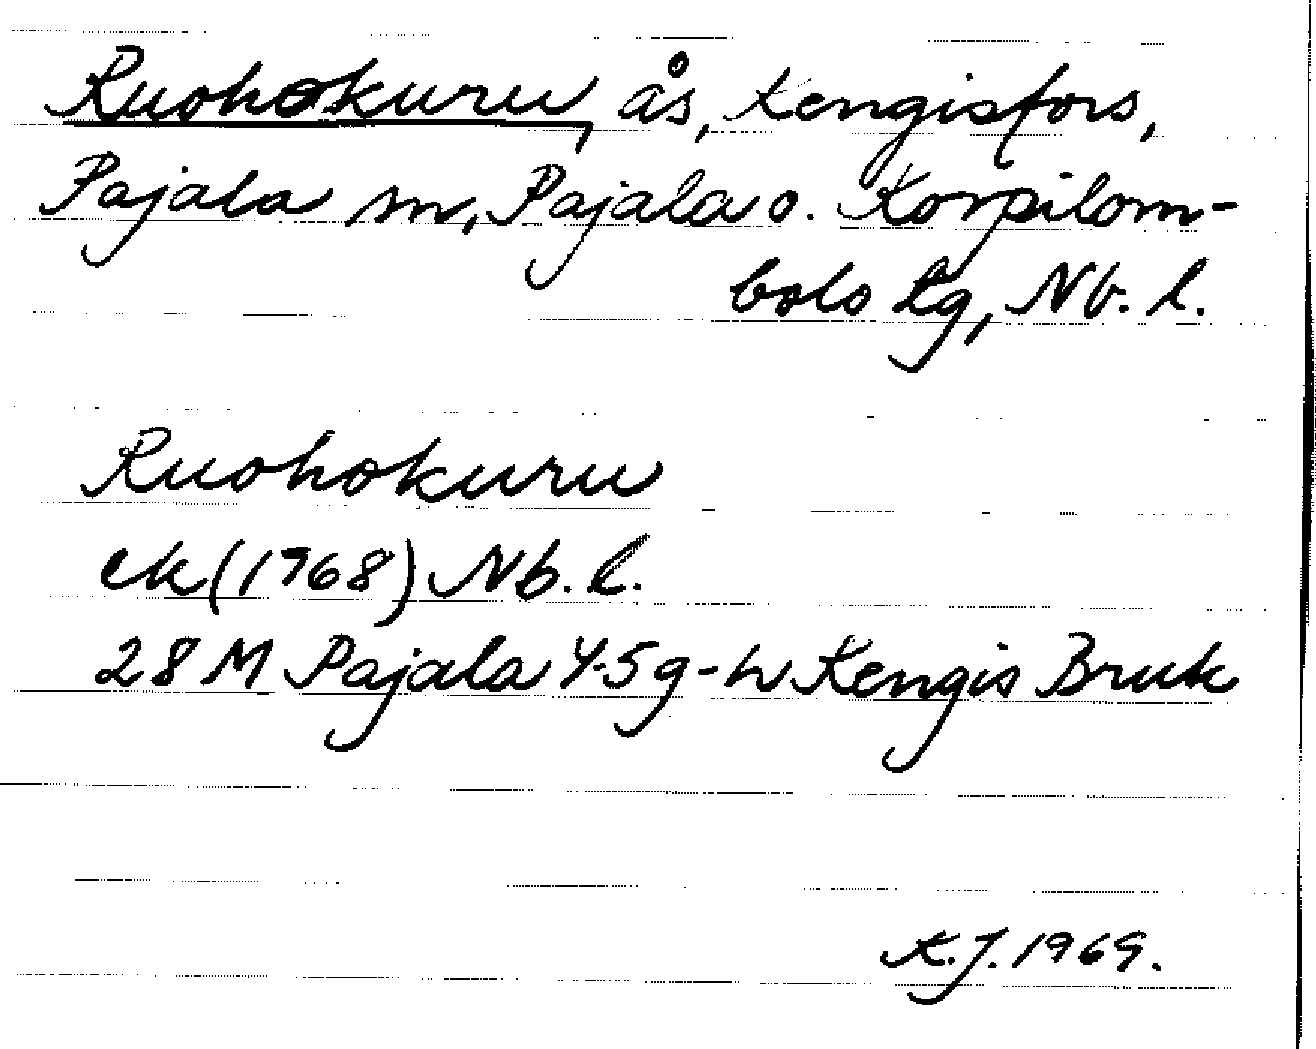 Ruohokuru, ås, Kengisfors,
Pajala sn, Pajala o. Korpilom-
bolo lg, Nb. l.
Ruohokuru
ek (1968) Nb. l.
28 M Pajala 4-5 g-h Kengis Bruk
K.J. 1969.